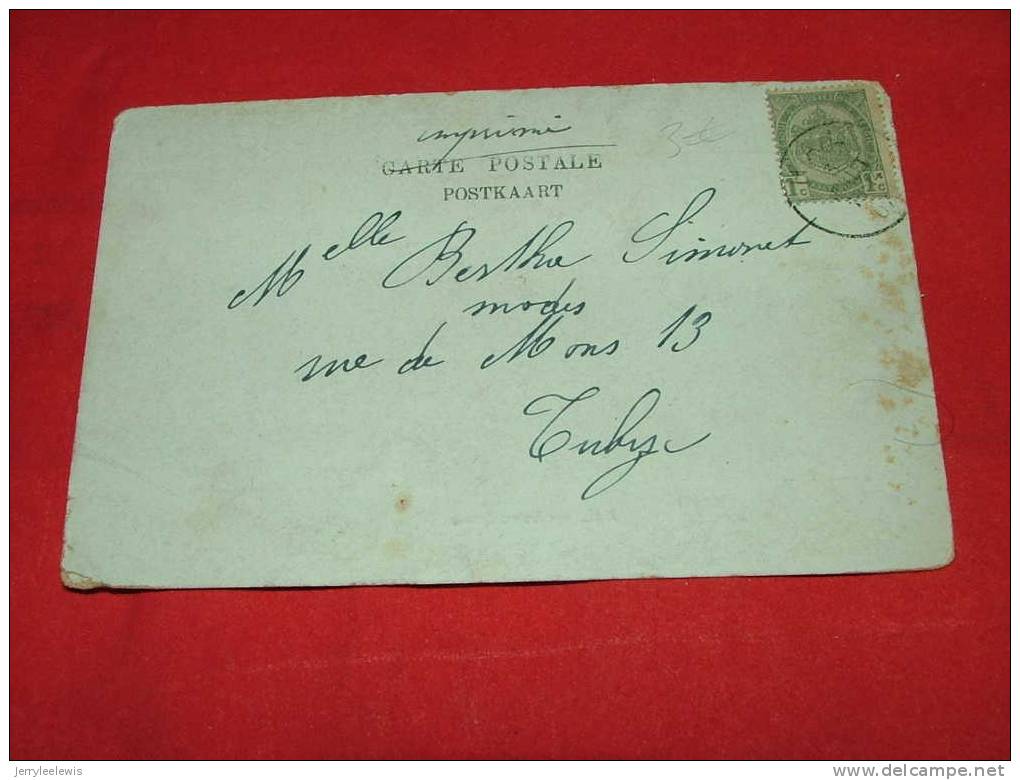 imprimé
CARTE POSTALE
POSTKAART
Melle Bertha Simonet
modes
rue de Mons 13
Tubize
1c 1c
jerryleelewis
www.delcampe.net